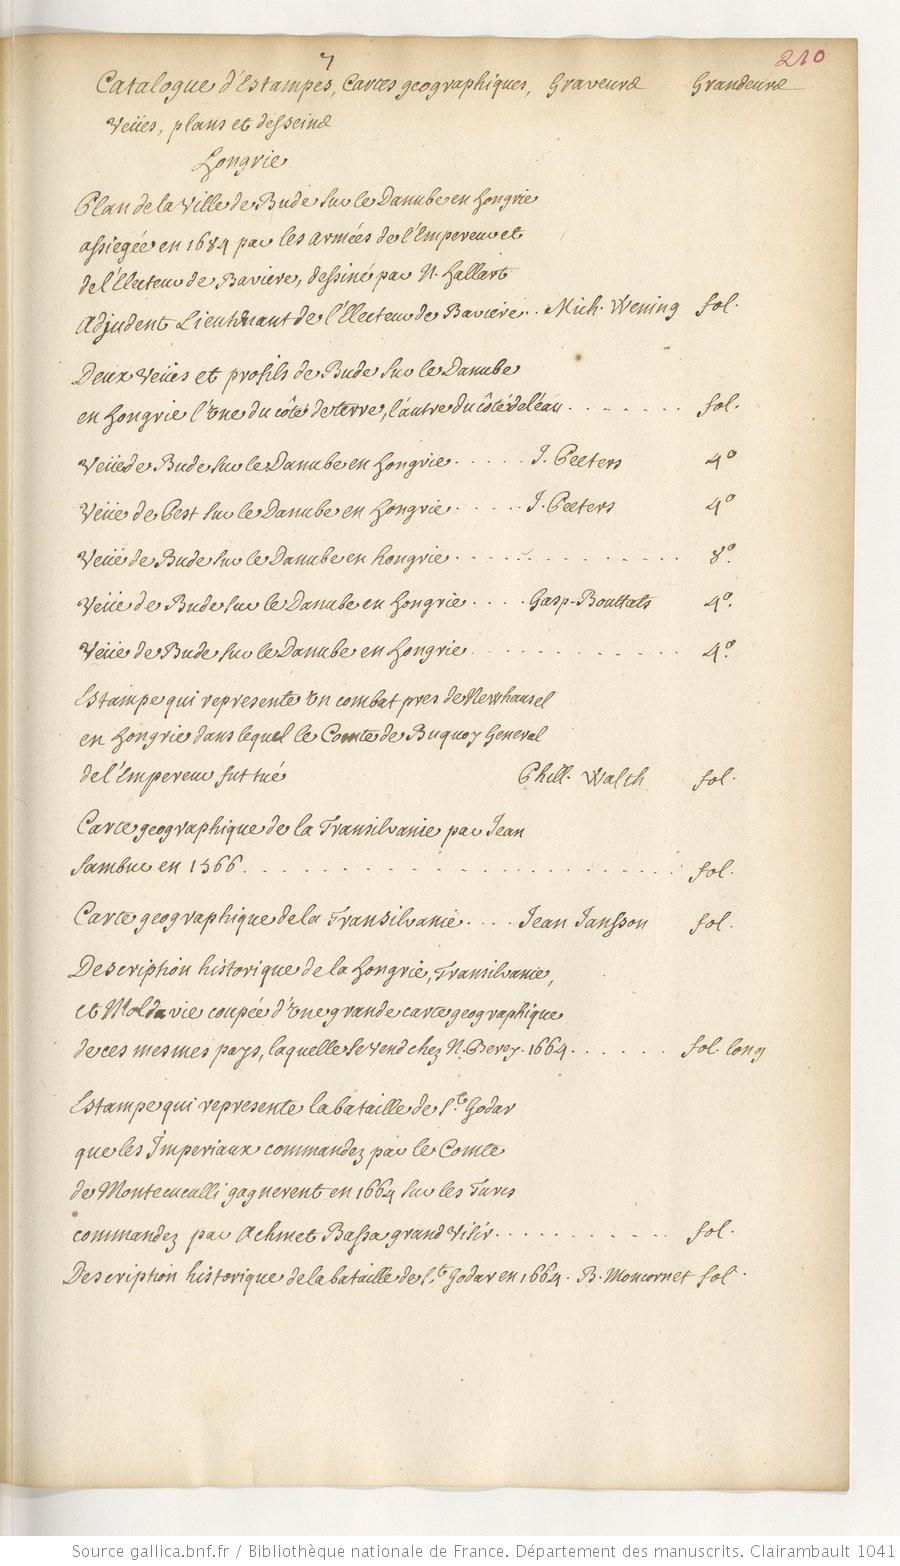 7
210
Catalogue d'Estampes, Cartes geographiques, Graveurs Grandeurs
Veües, plans et desseins
Hongrie
Plan de la Ville de Bude sur le Danube en Hongrie
assiegée en 1684 par les armées de l'Empereur et
de l'Electeur de Baviere, dessiné par N. Hallart
Adjudent Lieutenant de l'Electeur de Baviere.. Mich. Wening fol.
Deux Veües et profils de Bude sur le Danube
en Hongrie l'une du côté de terre, l'autre du côté de l'eau . . . . . . . fol.
Veüe de Bude sur le Danube en Hongrie . . . . . J. Peeters 4º
Veüe de Pest sur le Danube en Hongrie . . . . . J. Peeters 4º
Veüe de Bude sur le Danube en hongrie . . . . . . . . . . . . . 8º.
Veüe de Bude sur le Danube en Hongrie . . . . Gasp. Bouttats 4º.
Veüe de Bude sur le Danube en Hongrie . . . . . . . . . . . . . 4º.
Estampe qui represente un combat pres de Newhausel
en Hongrie dans lequel le Comte de Buquoy General
de l'Empereur fut tué Phill. Walth fol.
Carte geographique de la Transilvanie par Jean
Sambuc en 1566. . . . . . . . . . . . . . . . . . . . . . . fol.
Carte geographique de la Transilvanie . . . . Jean Jansson fol.
Description historique de la Hongrie, Transilvanie,
et Moldavie coupée d'une grande carte geographique
de ces mesmes pays, laquelle se vend chez N. Berey. 1664. . . . . . . fol. long
Estampe qui represente la bataille de St. Godar
que les Imperiaux commandez par le Comte
de Montecuculli gagnerent en 1664 sur les Turcs
commandez par Achmet Bassa grand Visir. . . . . . . . . . . fol.
Description historique de la bataille de St. Godar en 1664. B. Moncornet fol.
Source gallica.bnf.fr / Bibliothèque nationale de France. Département des manuscrits. Clairambault 1041